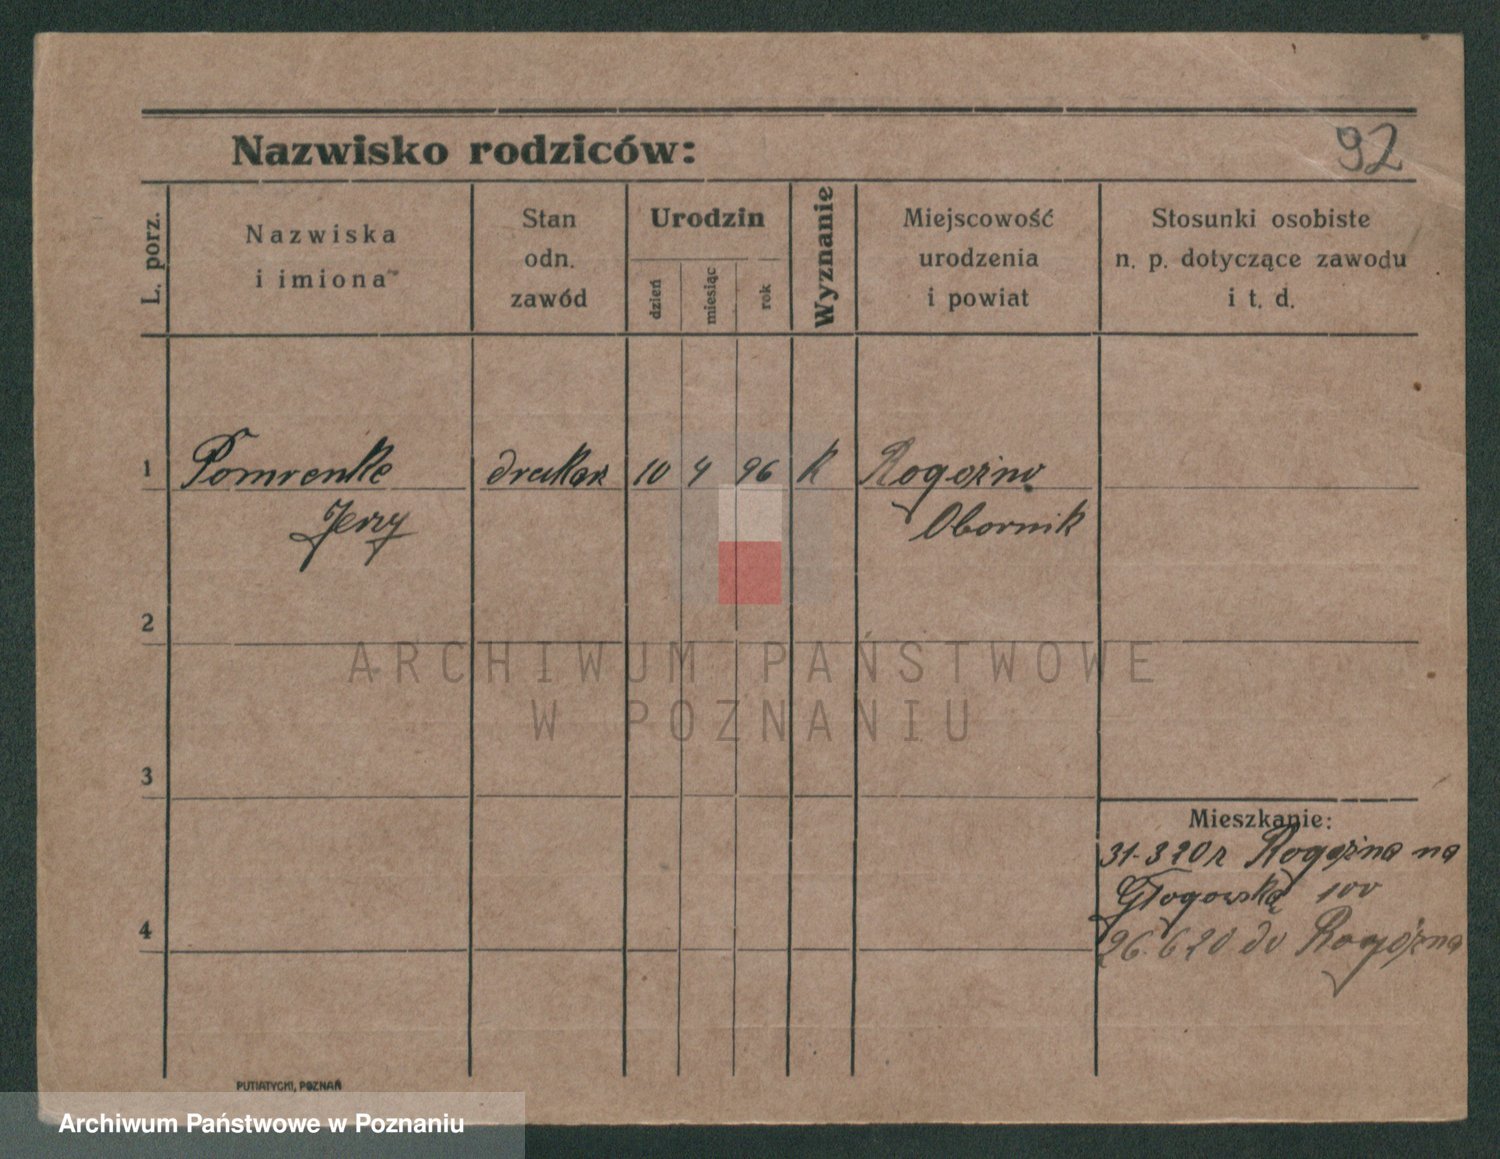 92
Nazwisko rodziców:
L. porz.
Nazwiska
i imiona
Stan
odn.
zawód
Urodzin
dzień
miesiąc
rok
Wyznanie
Miejscowość
urodzenia
i powiat
Stosunki osobiste
n. p. dotyczące zawodu
i t. d.
1 Pomrenke drukarz 10 4 96 k Rogoźno
Jerzy Obornik
2
ARCHIWUM PAŃSTWOWE
W POZNANIU
3
Mieszkanie:
31.3 20 r Rogoźna na
Głogowską 100
4
26.6 20 do Rogoźna
PUTIATYCKI, POZNAŃ
Archiwum Państwowe w Poznaniu